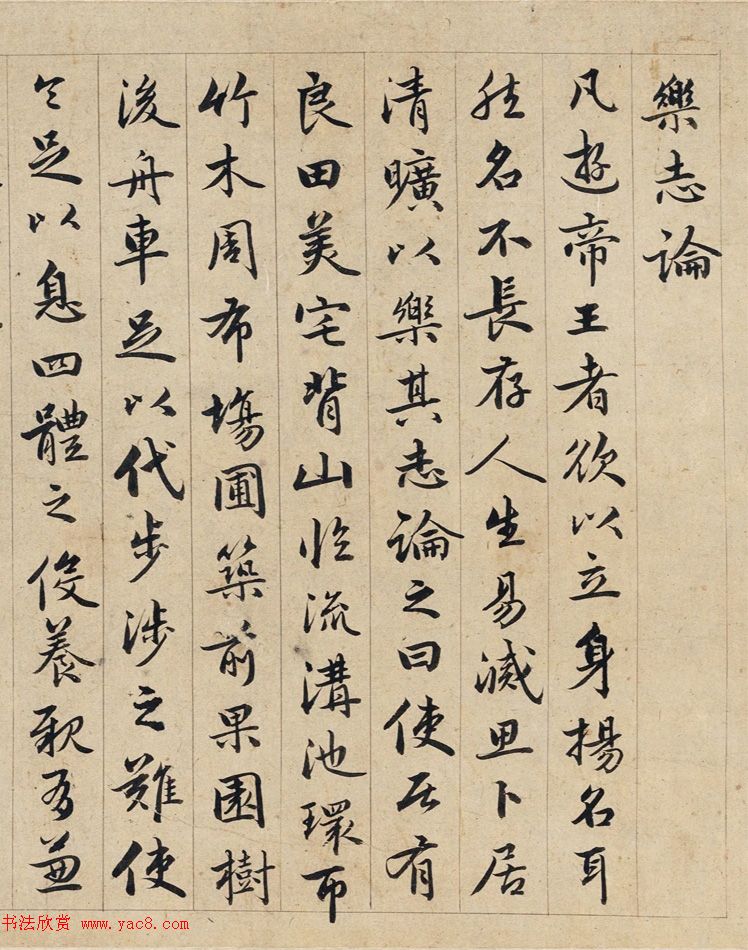 樂志論
凡遊帝王者欲以立身揚名耳
然名不長存人生易滅思卜居
清曠以樂其志論之曰使居有
良田美宅背山臨流溝池環帀
竹木周布塲圃築前果園樹
後舟車足以代步涉之難使
令足以息四體之役養親有兼
书法欣赏 www.yac8.com